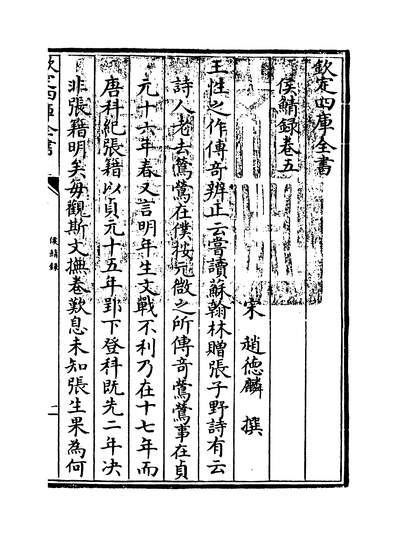 欽定四庫全書
侯鯖録卷五
宋 趙德麟 撰
王性之作傳奇辨正云嘗讀蘇翰林贈張子野詩有云
詩人老去鶯鶯在僕按元微之所傳奇鶯鶯事在貞
元十六年春又言明年生文戰不利乃在十七年而
唐科紀張籍以貞元十五年郢下登科既先二年决
非張籍明矣毎觀斯文撫卷歎息未知張生果為何
欽定四庫全書
侯鯖録
一